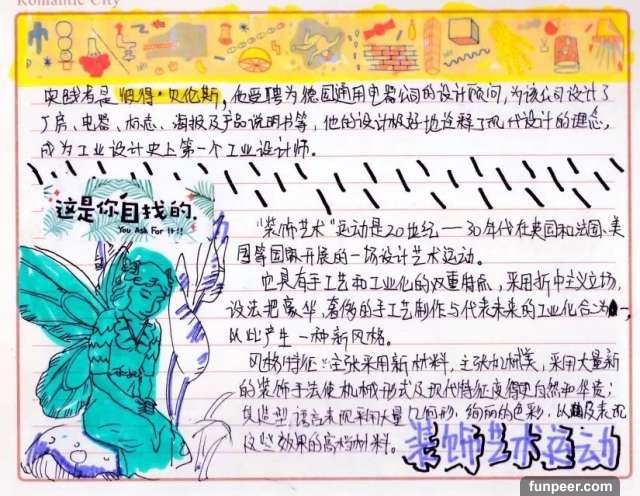 Romantic City
实践者是彼得·贝伦斯，他受聘为德国通用电器公司的设计顾问，为该公司设计了
厂房、电器、标志、海报及产品说明书等，他的设计极好地诠释了现代设计的理念，
成为工业设计史上第一个工业设计师。
这是你自找的.
You Ask For It!!
"装饰艺术"运动是20世纪——30年代在英国和法国、美
国等国家开展的一场设计艺术运动。
它具有手工艺和工业化的双重特点，采用折中主义立场，
设法把豪华、奢侈的手工艺制作与代表未来的工业化合二为一，
以此产生一种新风格。
风格特征：主张采用新材料，主张机械美，采用大量新
的装饰手法使机械形式及现代特征变得更自然和华贵；
其造型语言表现采用大量几何形，绚丽的色彩，以及表现
这些效果的高档材料。
装饰艺术运动
funpeer.com